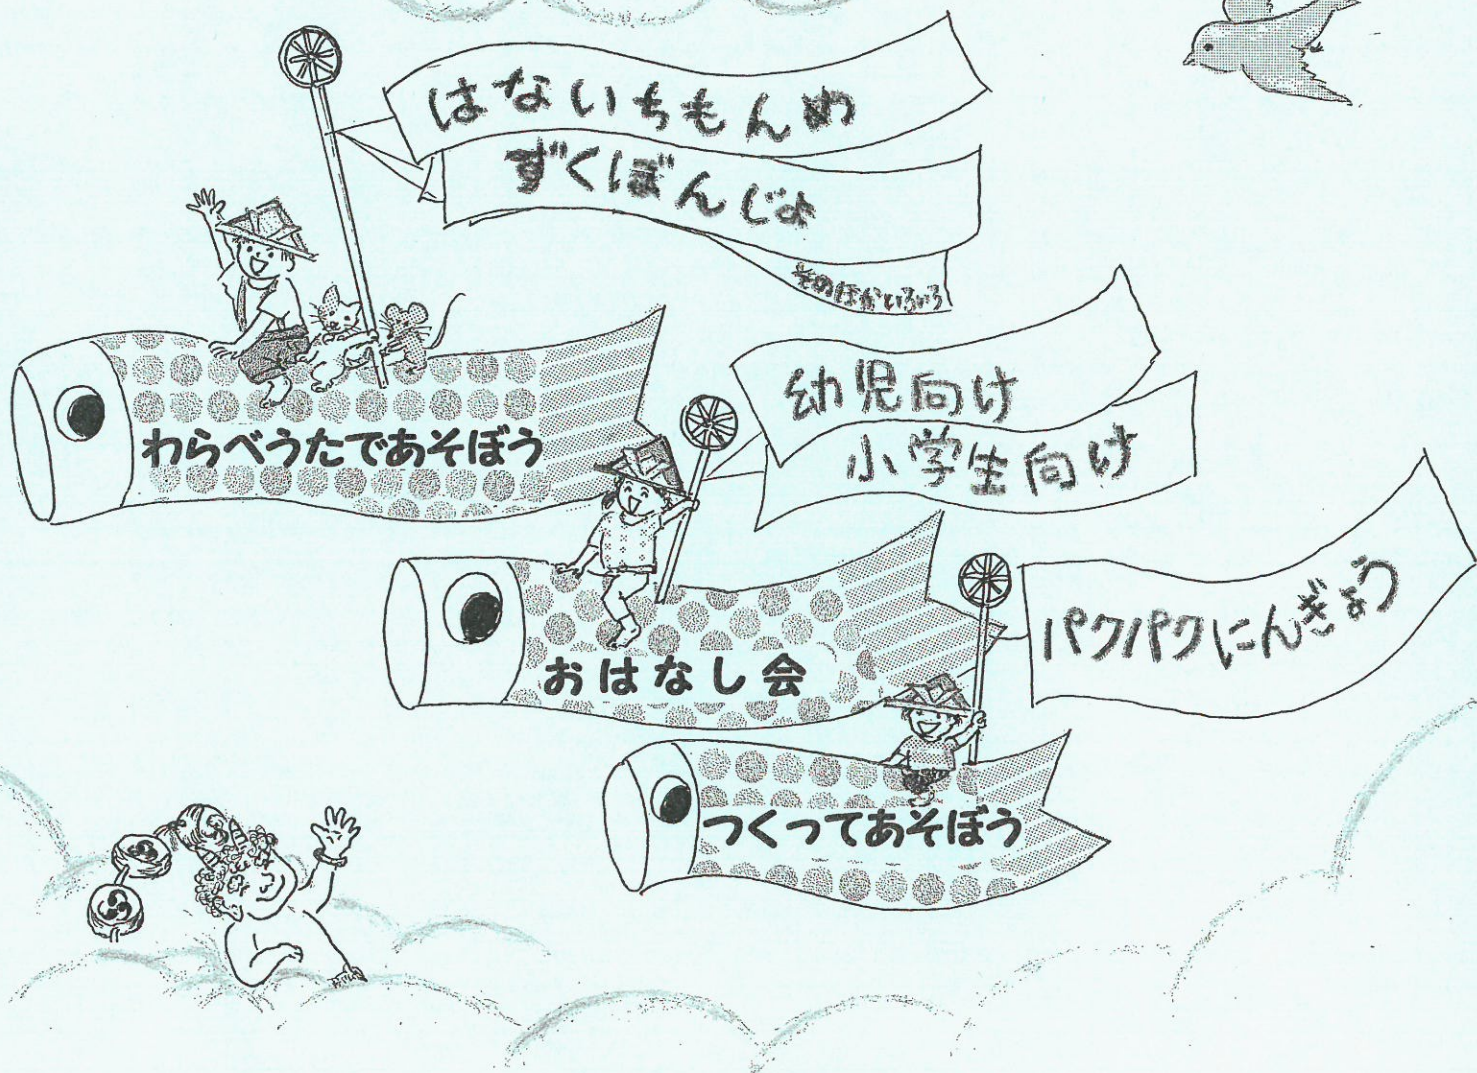 はないちもんめ
ずくぼんじょ
そのほかいろいろ
わらべうたであそぼう
幼児向け
小学生向け
おはなし会
パクパクにんぎょう
つくってあそぼう